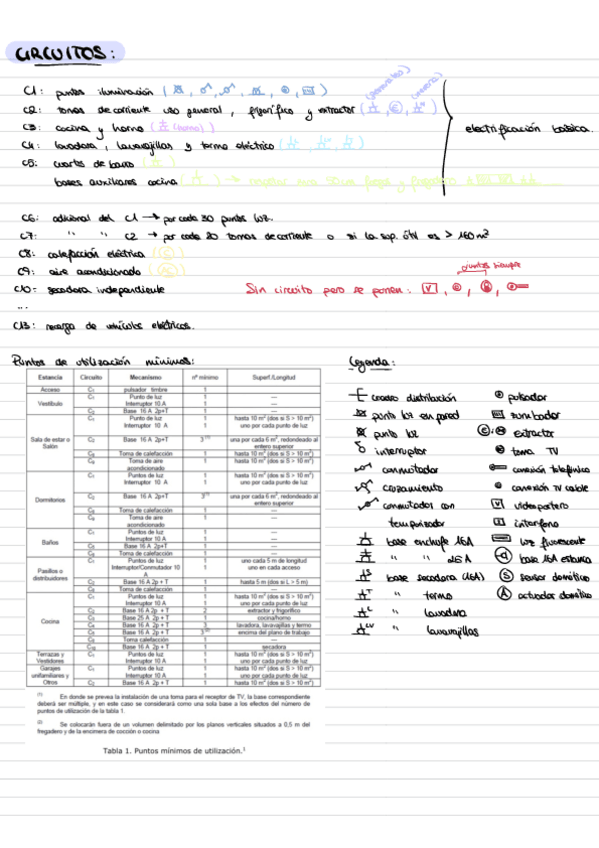 CIRCUITOS:
C1: puntos iluminación
C2: tomas de corriente uso general, frigorífico y extractor
C3: cocina y horno (horno)
C4: lavadora, lavavajillas y termo eléctrico
C5: cuartos de baño
bases auxiliares cocina
electrificación básica.
C6: adicional del C1 → por cada 30 puntos luz.
C7: " " C2 → por cada 20 tomas de corriente o si la sup. útil es > 160 m²
C8: calefacción eléctrica
C9: aire acondicionado
C10: secadora independiente
Sin circuito pero se ponen:
juntos siempre
...
C13: recarga de vehículos eléctricos.
Puntos de utilización mínimos:
Estancia Circuito Mecanismo nº mínimo Superf./Longitud
Acceso C1 pulsador timbre 1
Vestíbulo C1 Punto de luz 1 ---
Interruptor 10 A 1 ---
C2 Base 16 A 2p+T 1 ---
Sala de estar o Salón C1 Punto de luz 1 hasta 10 m² (dos si S > 10 m²)
Interruptor 10 A 1 uno por cada punto de luz
C2 Base 16 A 2p+T 3 (1) una por cada 6 m², redondeado al entero superior
C8 Toma de calefacción 1 hasta 10 m² (dos si S > 10 m²)
C9 Toma de aire acondicionado 1 hasta 10 m² (dos si S > 10 m²)
Dormitorios C1 Puntos de luz 1 hasta 10 m² (dos si S > 10 m²)
Interruptor 10 A 1 uno por cada punto de luz
C2 Base 16 A 2p+T 3(1) una por cada 6 m², redondeado al entero superior
C8 Toma de calefacción 1 ---
C9 Toma de aire acondicionado 1 ---
Baños C1 Puntos de luz 1 ---
Interruptor 10 A 1 ---
C5 Base 16 A 2p+T 1 ---
C8 Toma de calefacción 1 ---
Pasillos o distribuidores C1 Puntos de luz 1 uno cada 5 m de longitud
Interruptor/Conmutador 10 A 1 uno en cada acceso
C2 Base 16 A 2p + T 1 hasta 5 m (dos si L > 5 m)
C8 Toma de calefacción 1 ---
Cocina C1 Puntos de luz 1 hasta 10 m² (dos si S > 10 m²)
Interruptor 10 A 1 uno por cada punto de luz
C2 Base 16 A 2p + T 2 extractor y frigorífico
C3 Base 25 A 2p + T 1 cocina/horno
C4 Base 16 A 2p + T 3 lavadora, lavavajillas y termo
C5 Base 16 A 2p + T 3 (2) encima del plano de trabajo
C8 Toma calefacción 1 ---
C10 Base 16 A 2p + T 1 secadora
Terrazas y Vestidores C1 Puntos de luz 1 hasta 10 m² (dos si S > 10 m²)
Interruptor 10 A 1 uno por cada punto de luz
Garajes unifamiliares y Otros C1 Puntos de luz 1 hasta 10 m² (dos si S > 10 m²)
Interruptor 10 A 1 uno por cada punto de luz
C2 Base 16 A 2p + T 1 hasta 10 m² (dos si S > 10 m²)
(1) En donde se prevea la instalación de una toma para el receptor de TV, la base correspondiente
deberá ser múltiple, y en este caso se considerará como una sola base a los efectos del número de
puntos de utilización de la tabla 1.
(2) Se colocarán fuera de un volumen delimitado por los planos verticales situados a 0,5 m del
fregadero y de la encimera de cocción o cocina
Tabla 1. Puntos mínimos de utilización.1
Leyenda:
cuadro distribución
punto luz en pared
punto luz
interruptor
conmutador
cruzamiento
conmutador con
temporizador
base enchufe 16A
" " 25A
base secadora (16A)
" termo
" lavadora
" lavavajillas
pulsador
zumbador
extractor
toma TV
conexión telefónica
conexión TV cable
videoportero
interfono
luz fluorescente
base 16A estanca
sensor domótico
actuador domótico